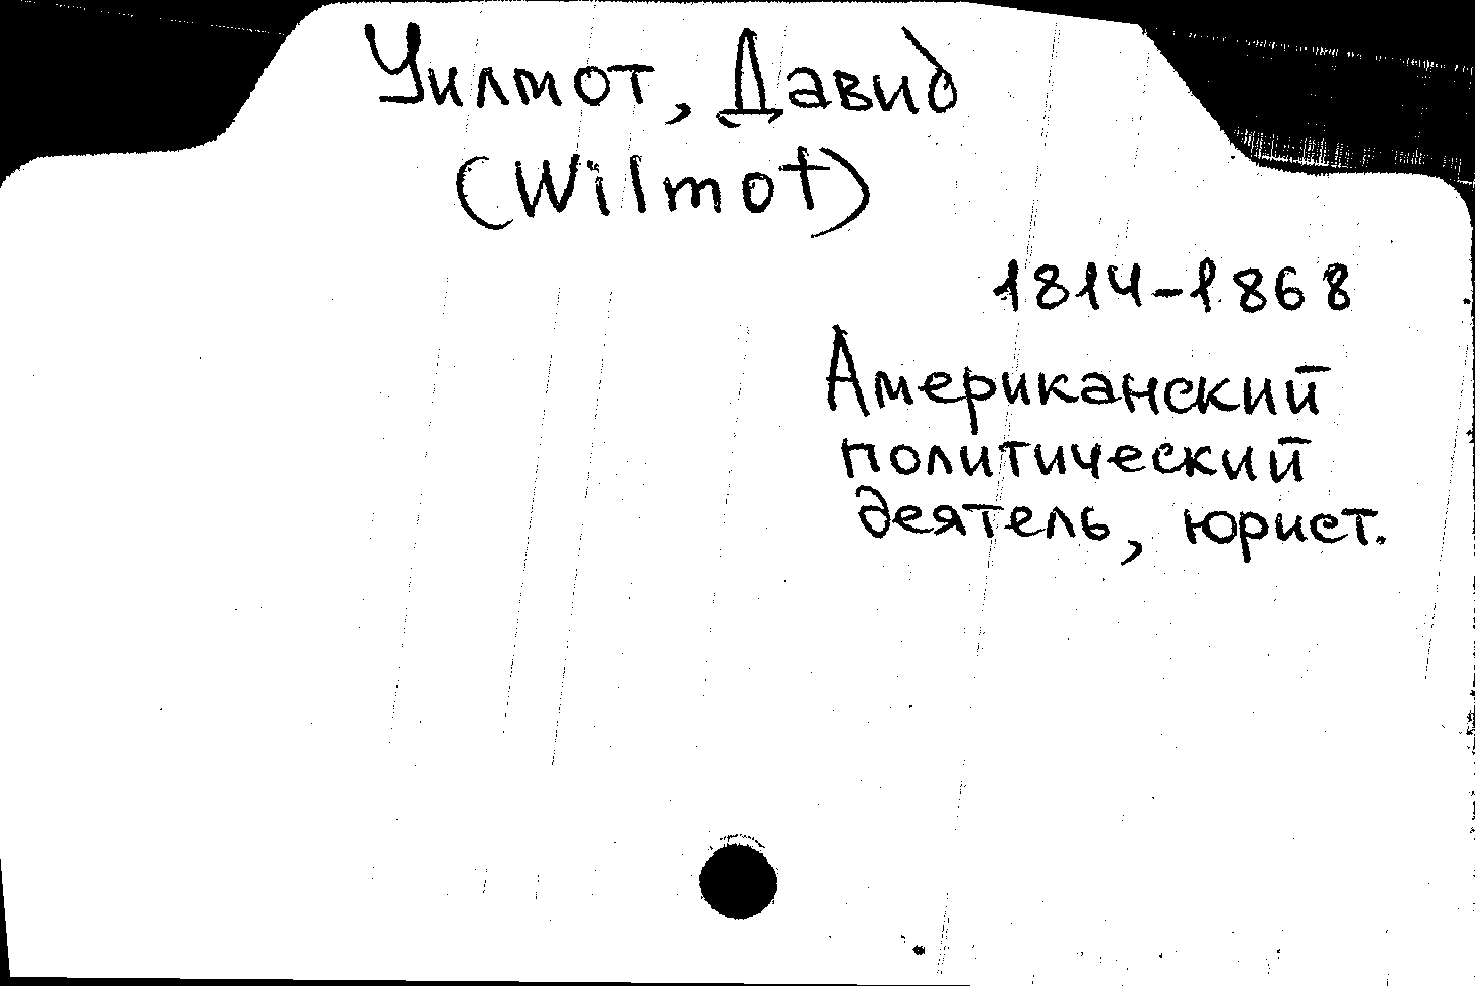 Уилмот, Давид
(Wilmot)
1814-1868
Американский
политический
деятель, юрист.